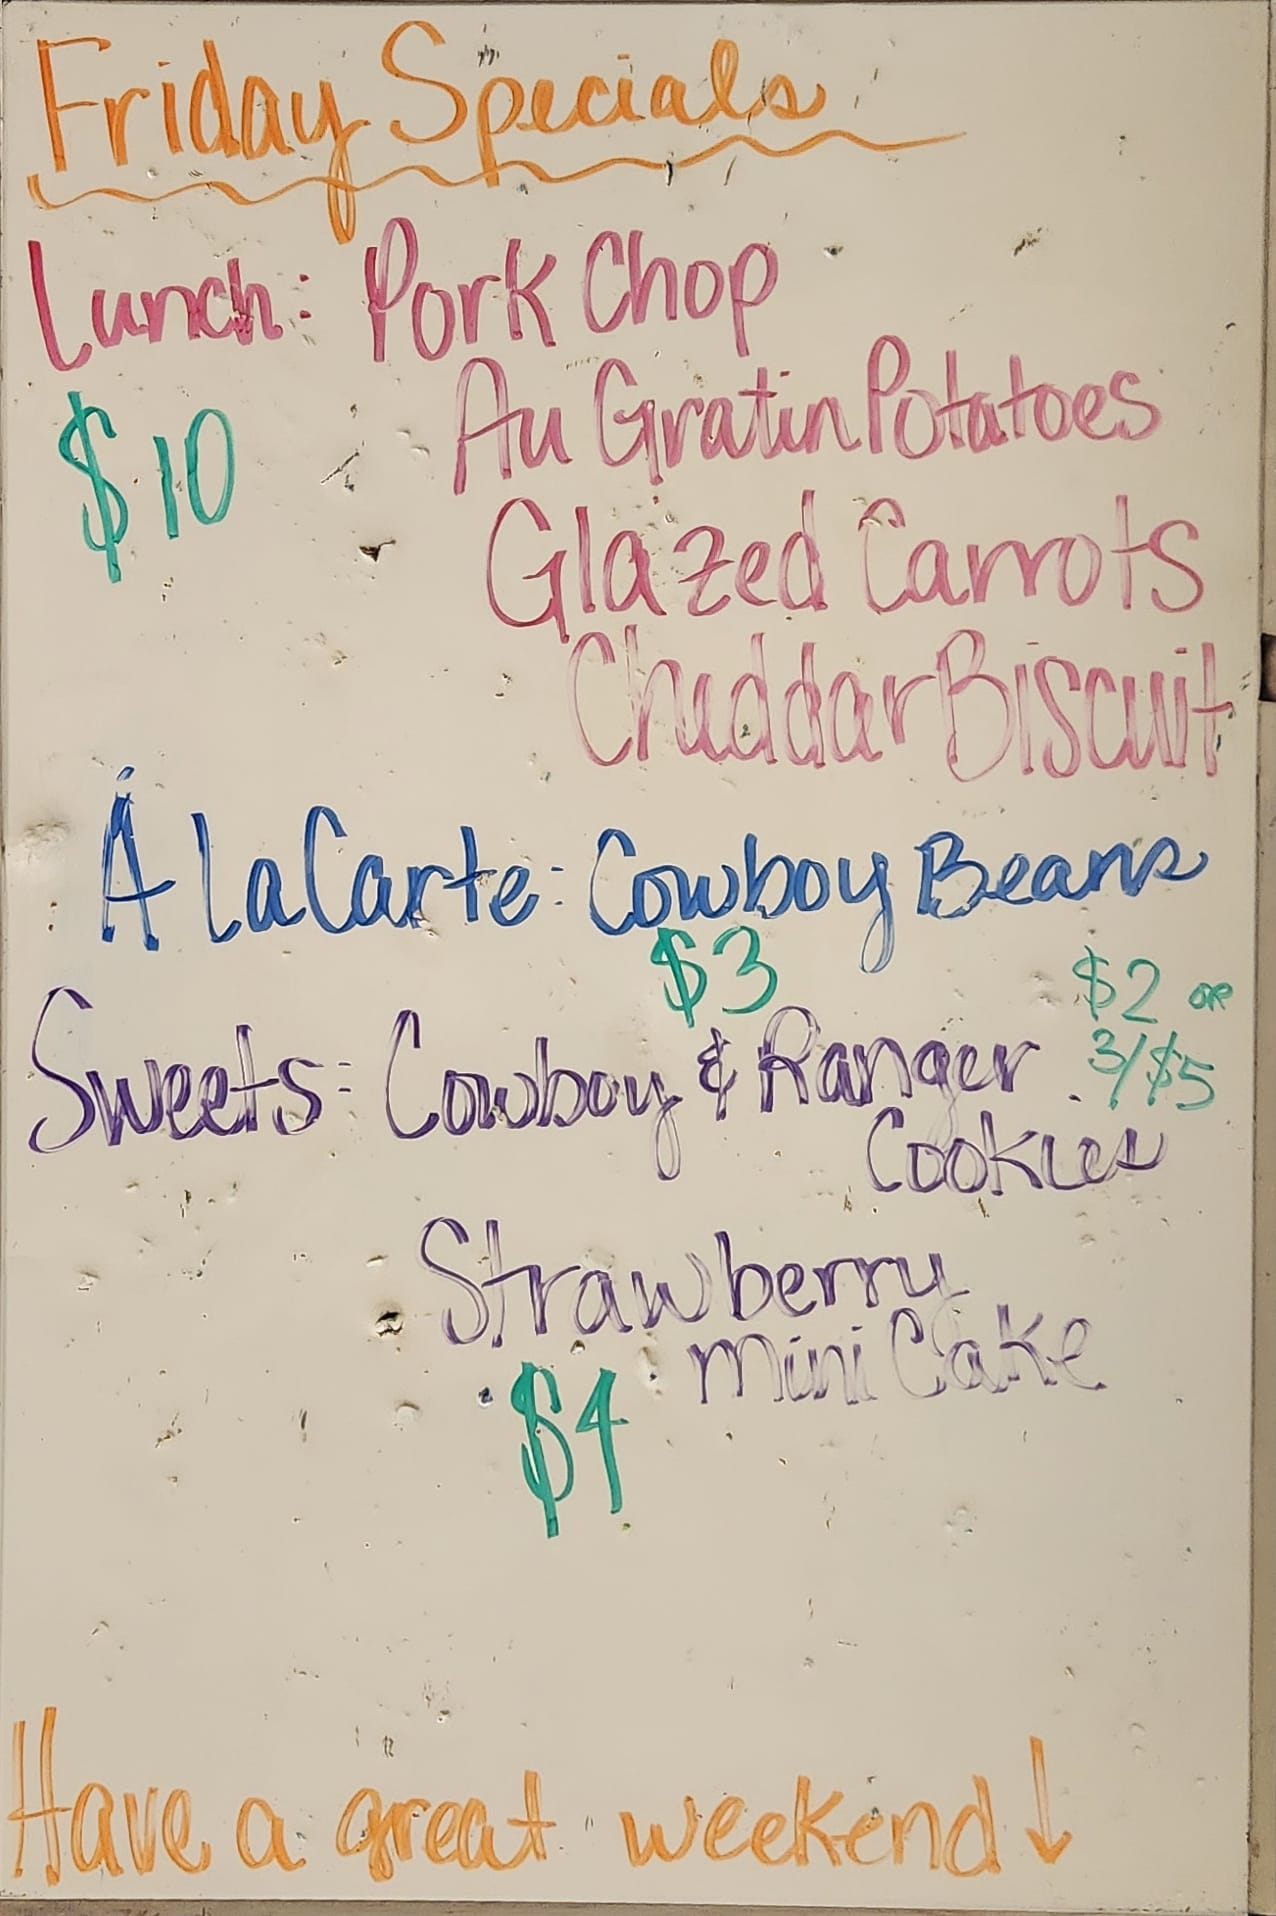 Friday Specials
Lunch: Pork Chop
$10 Au Gratin Potatoes
Glazed Carrots
Cheddar Biscuit
Á La Carte: Cowboy Beans
$3 $2 or
Sweets: Cowboy & Ranger 3/$5
Cookies
Strawberry
Mini Cake
$4
Have a great weekend ↓